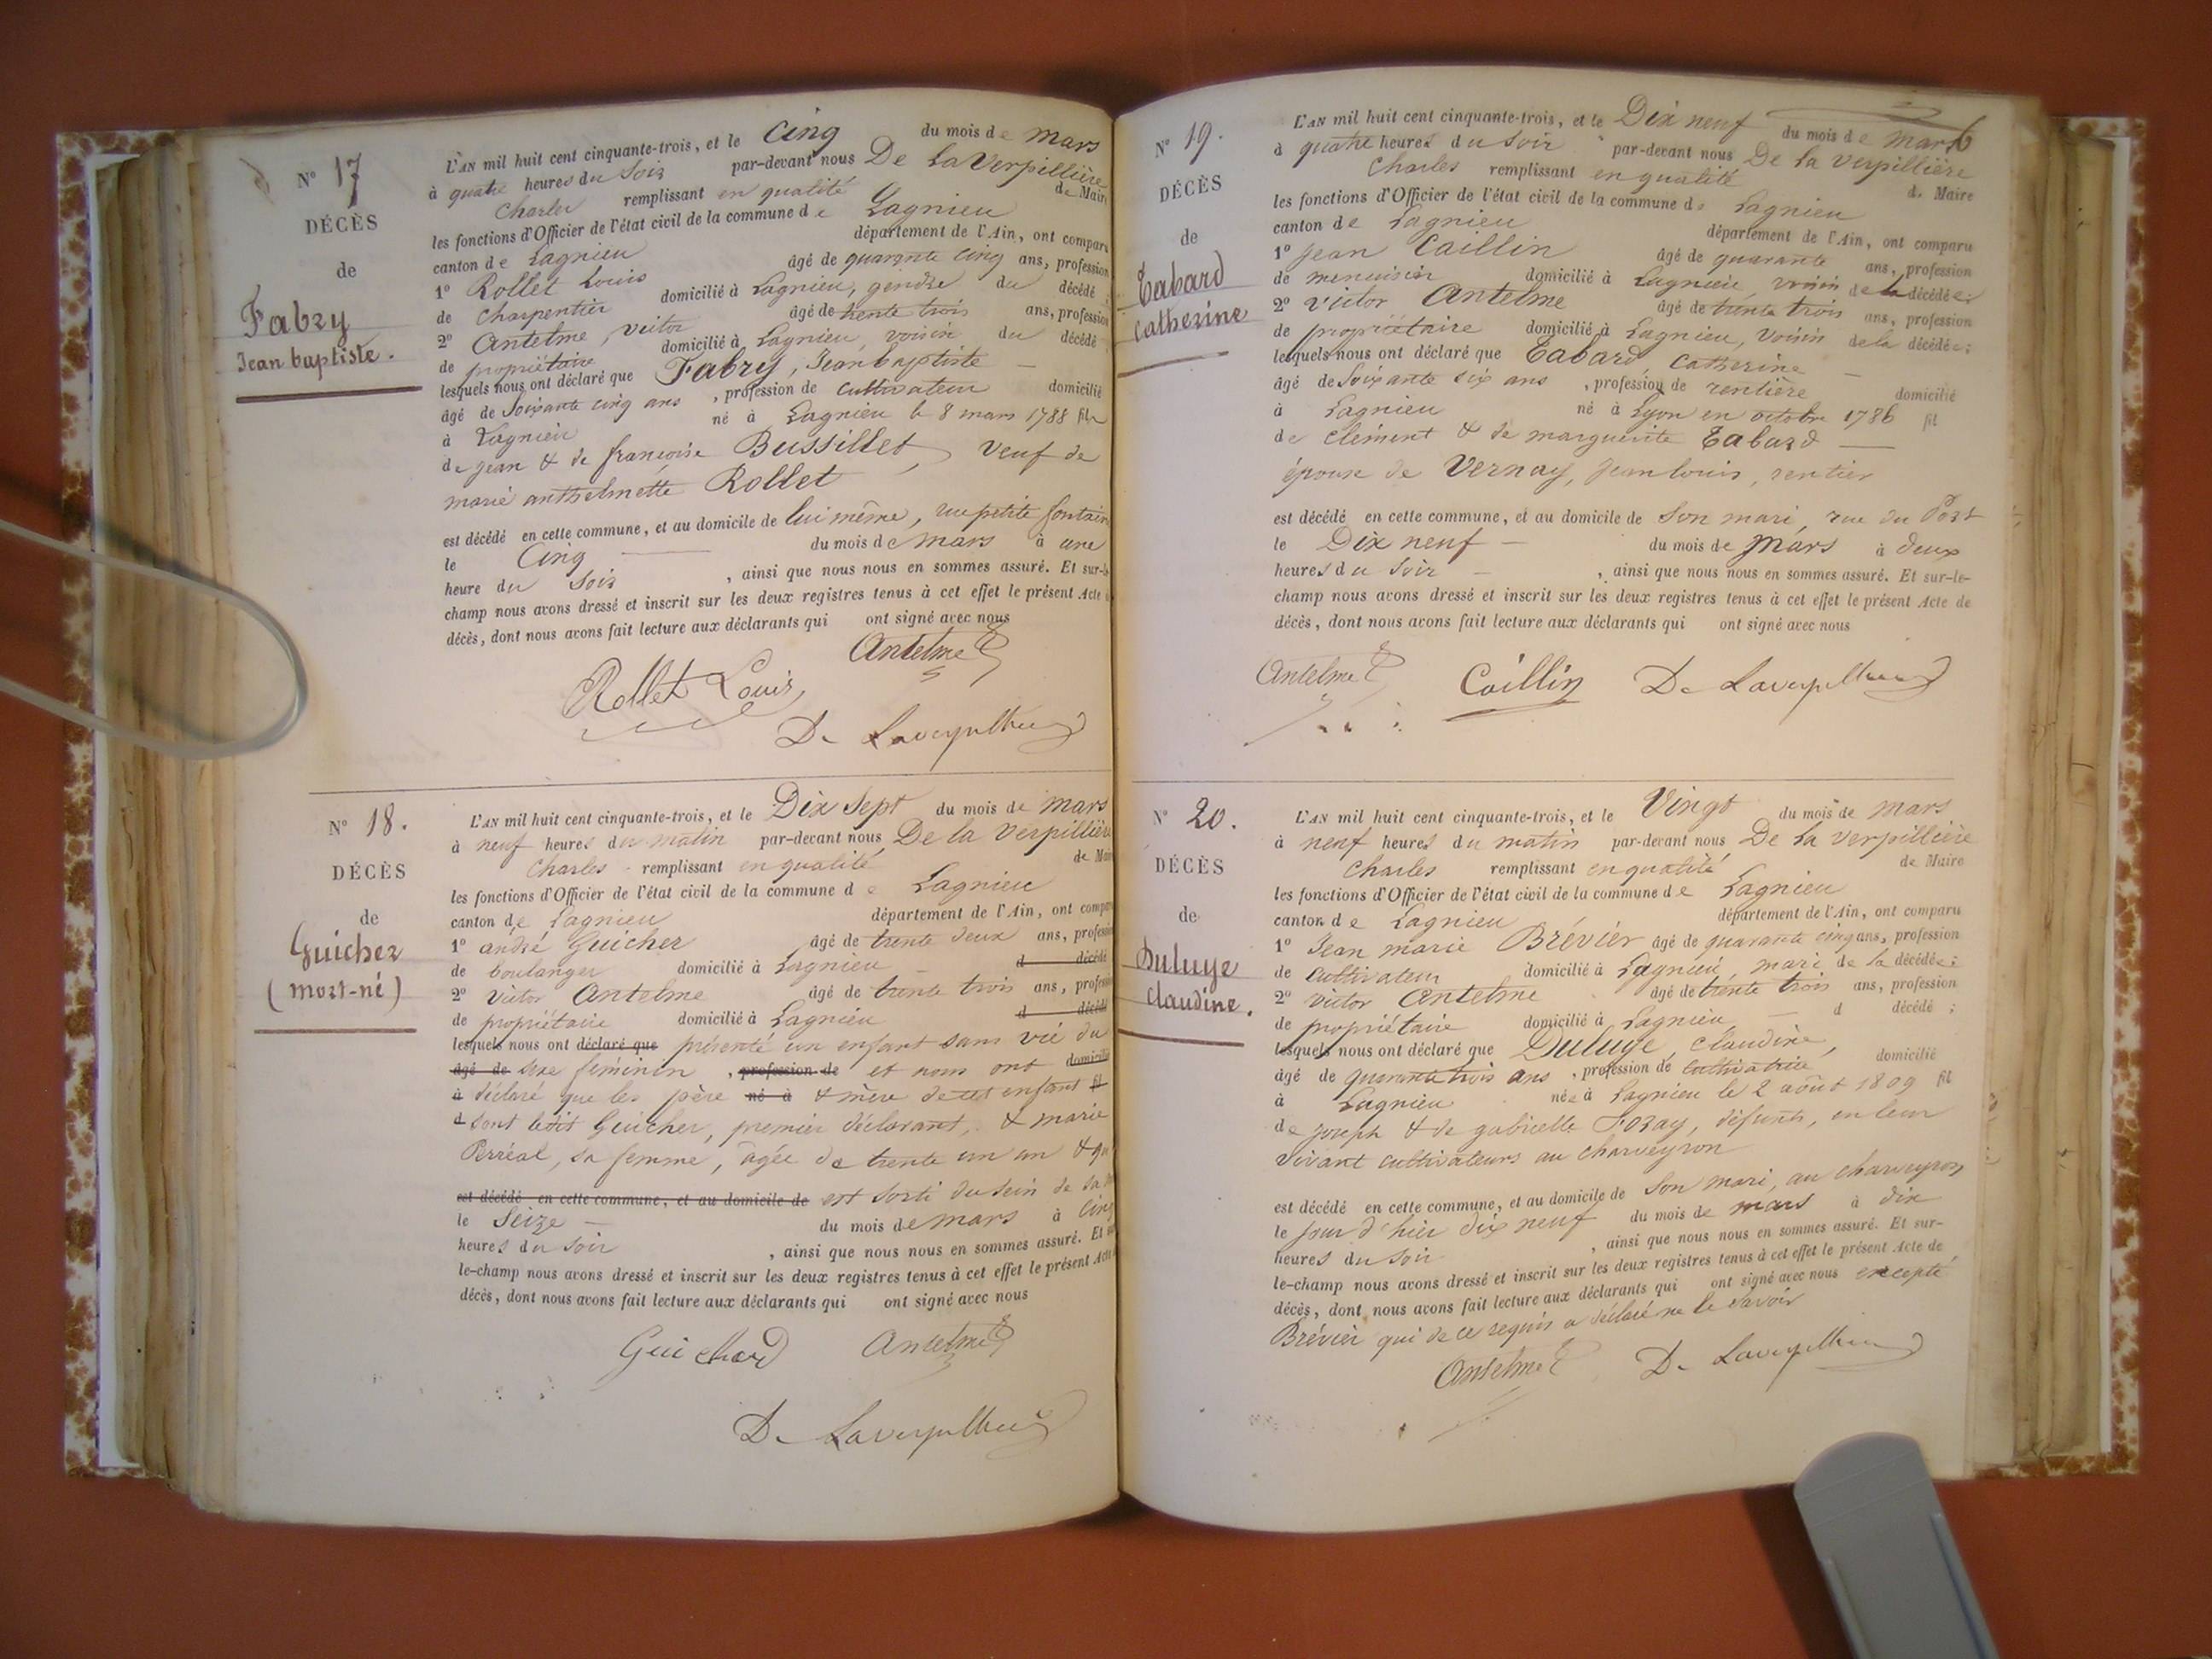 N° 17
DÉCÈS
de
Fabry
Jean baptiste.
L'AN mil huit cent cinquante-trois, et le Cinq du mois de mars
à quatre heures du Soir par-devant nous De La Verpillière
Charles remplissant en qualité de Maire
les fonctions d'Officier de l'état civil de la commune de Lagnieu
canton de Lagnieu département de l'Ain, ont comparu
1° Rollet Louis âgé de quarante cinq ans, profession
de charpentier domicilié à Lagnieu, gendre du décédé
2° Antelme, Victor âgé de trente trois ans, profession
de propriétaire domicilié à Lagnieu, voisin du décédé
lesquels nous ont déclaré que Fabry, Jean baptiste
âgé de Soixante cinq ans, profession de cultivateur domicilié
à Lagnieu né à Lagnieu le 8 mars 1788 fils
de jean & de françoise Bussillet, Veuf de
marie anthelmette Rollet
est décédé en cette commune, et au domicile de lui même, rue petite fontain
le Cinq du mois de mars à une
heure du Soir, ainsi que nous nous en sommes assuré. Et sur-le-
champ nous avons dressé et inscrit sur les deux registres tenus à cet effet le présent Acte
décès, dont nous avons fait lecture aux déclarants qui ont signé avec nous
Antelme
Rollet Louis
De Laverpillière
N° 18.
DÉCÈS
de
Guicher
(mort-né)
L'AN mil huit cent cinquante-trois, et le Dix Sept du mois de mars
à neuf heures du matin par-devant nous De la Verpillière
Charles remplissant en qualité de Maire
les fonctions d'Officier de l'état civil de la commune de Lagnieu
canton de Lagnieu département de l'Ain, ont comparu
1° andré Guicher âgé de trente deux ans, profession
de boulanger domicilié à Lagnieu d décédé
2° Victor Antelme âgé de trente trois ans, profession
de propriétaire domicilié à Lagnieu d décédé
lesquels nous ont déclaré que présenté un enfant sans vie du
âgé de sexe féminin, profession de et nous ont domicilié
à déclaré que les père né à & mère de cet enfant fil
d sont ledit Guicher, premier déclarant, & marie
Perréal, sa femme, agée de trente un an & qu
est décédé en cette commune, et au domicile de est sorti du sein de sa
le Seize du mois de mars à Cinq
heures du Soir, ainsi que nous nous en sommes assuré. Et
le-champ nous avons dressé et inscrit sur les deux registres tenus à cet effet le présent Acte
décès, dont nous avons fait lecture aux déclarants qui ont signé avec nous
Guichard Antelme
De Laverpillière
N° 19.
DÉCÈS
de
Tabard
Catherine
L'AN mil huit cent cinquante-trois, et le Dix neuf du mois de mars
à quatre heures du Soir par-devant nous De la Verpillière
Charles remplissant en qualité de Maire
les fonctions d'Officier de l'état civil de la commune de Lagnieu
canton de Lagnieu département de l'Ain, ont comparu
1° Jean Caillin âgé de quarante ans, profession
de menuisier domicilié à Lagnieu, voisin de la décédée;
2° Victor Antelme âgé de trente trois ans, profession
de propriétaire domicilié à Lagnieu, Voisin de la décédée;
lesquels nous ont déclaré que Tabard Catherine
âgé de Soixante six ans, profession de rentière domicilié
à Lagnieu né à Lyon en octobre 1786 fil
de clément & de marguerite Tabard
épouse de Vernay, jean louis, rentier
est décédé en cette commune, et au domicile de Son mari, rue du Port
le Dix neuf du mois de Mars à deux
heures du Soir, ainsi que nous nous en sommes assuré. Et sur-le-
champ nous avons dressé et inscrit sur les deux registres tenus à cet effet le présent Acte de
décès, dont nous avons fait lecture aux déclarants qui ont signé avec nous
Antelme Caillin De Laverpillière
N° 20.
DÉCÈS
de
Duluye
Claudine.
L'AN mil huit cent cinquante-trois, et le Vingt du mois de mars
à neuf heures du matin par-devant nous De La Verpillière
Charles remplissant en qualité de Maire
les fonctions d'Officier de l'état civil de la commune de Lagnieu
canton de Lagnieu département de l'Ain, ont comparu
1° Jean marie Brévier âgé de quarante cinq ans, profession
de Cultivateur domicilié à Lagnieu, mari de la décédée;
2° Victor Antelme âgé de trente trois ans, profession
de propriétaire domicilié à Lagnieu d décédé;
lesquels nous ont déclaré que Duluye, Claudine,
âgé de quarante trois ans, profession de cultivatrice domicilié
à Lagnieu née à Lagnieu le 2 août 1809 fil
de joseph & de gabrielle Fozay, défunts, en leur
Vivant cultivateurs au charveyron
est décédé en cette commune, et au domicile de Son mari, au charveyron
le jour d'hier dix neuf du mois de mars à dix
heures du Soir, ainsi que nous nous en sommes assuré. Et sur-
le-champ nous avons dressé et inscrit sur les deux registres tenus à cet effet le présent Acte de
décès, dont nous avons fait lecture aux déclarants qui ont signé avec nous excepté
Brévier qui de ce requis a déclaré ne le Savoir
Antelme De Laverpillière